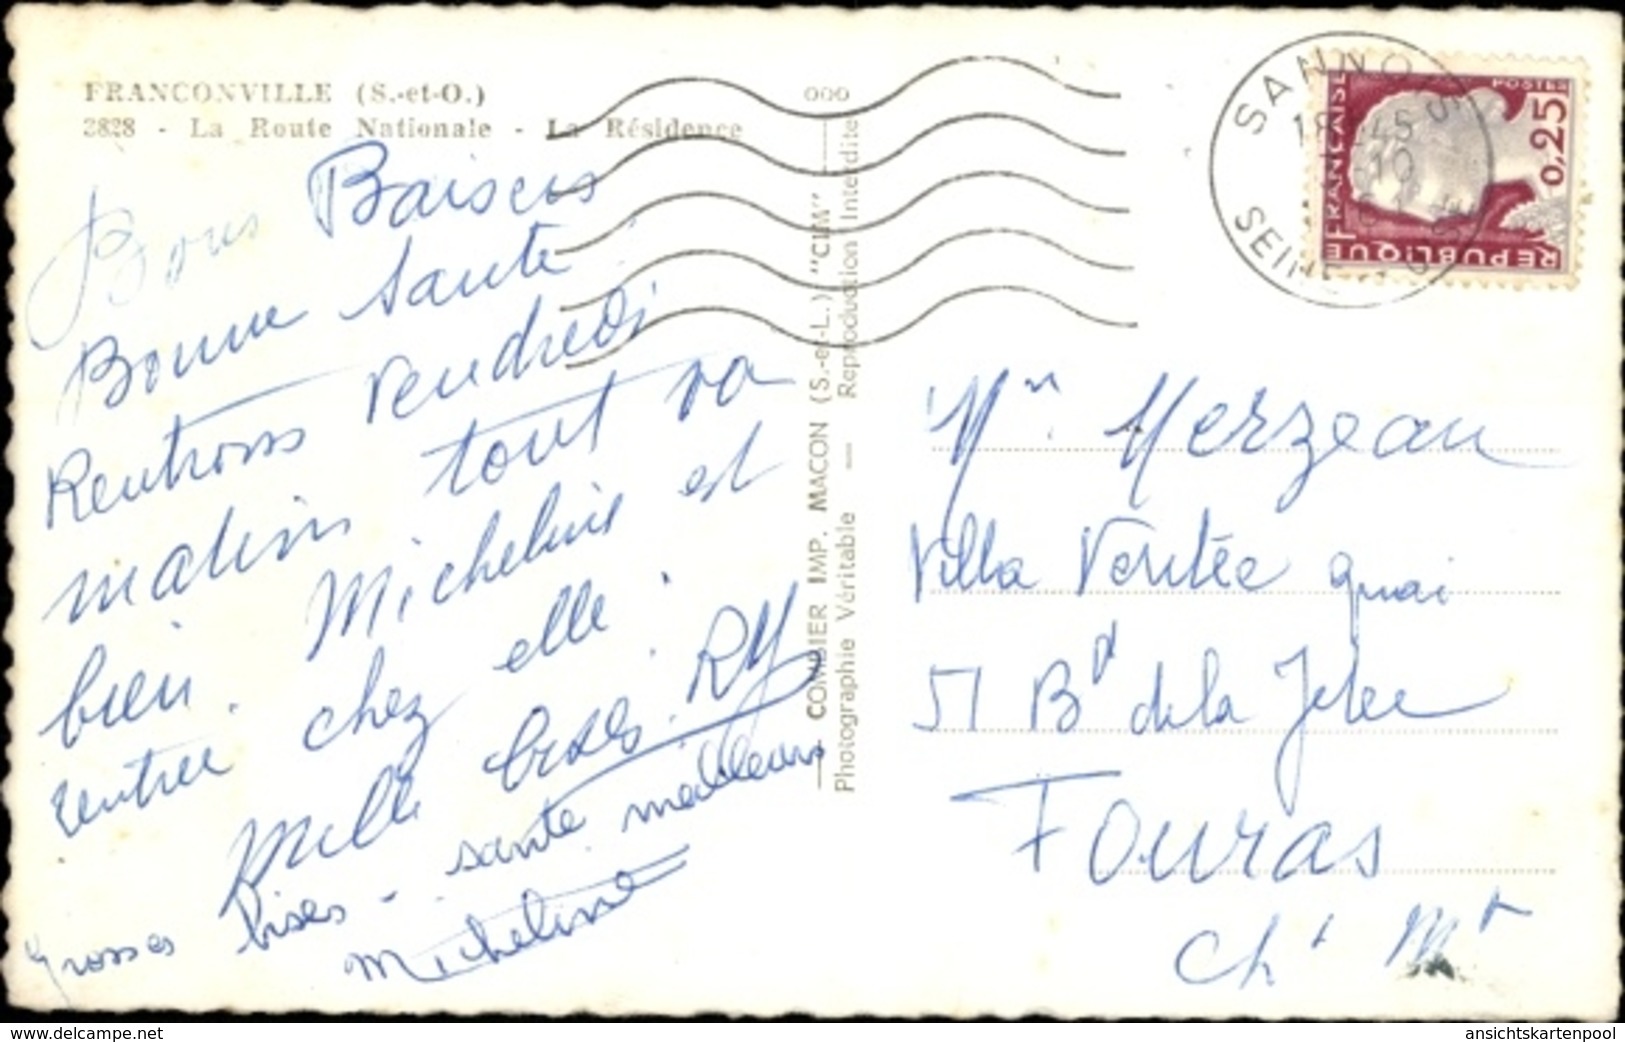 FRANCONVILLE (S.-et-O.)
2828 - La Route Nationale - La Résidence
ooo
Bons Baisers
Bonne Santé
Rentrons Vendredi
matin tout va
bien. Micheline est
rentrée chez elle.
Mille bises. RM
Grosses bises - santé meilleure
Micheline
COMBIER IMP. MACON (S.-et-L.) "CIM"
Photographie Véritable — Reproduction Interdite
SANNOIS
18 45
10
SEINE
POSTES
0,25
REPUBLIQUE FRANCAISE
Mr Merzeau
Villa Ventée quai
51 Bd de la Jetée
Fouras
Cht Mt
www.delcampe.net
ansichtskartenpool